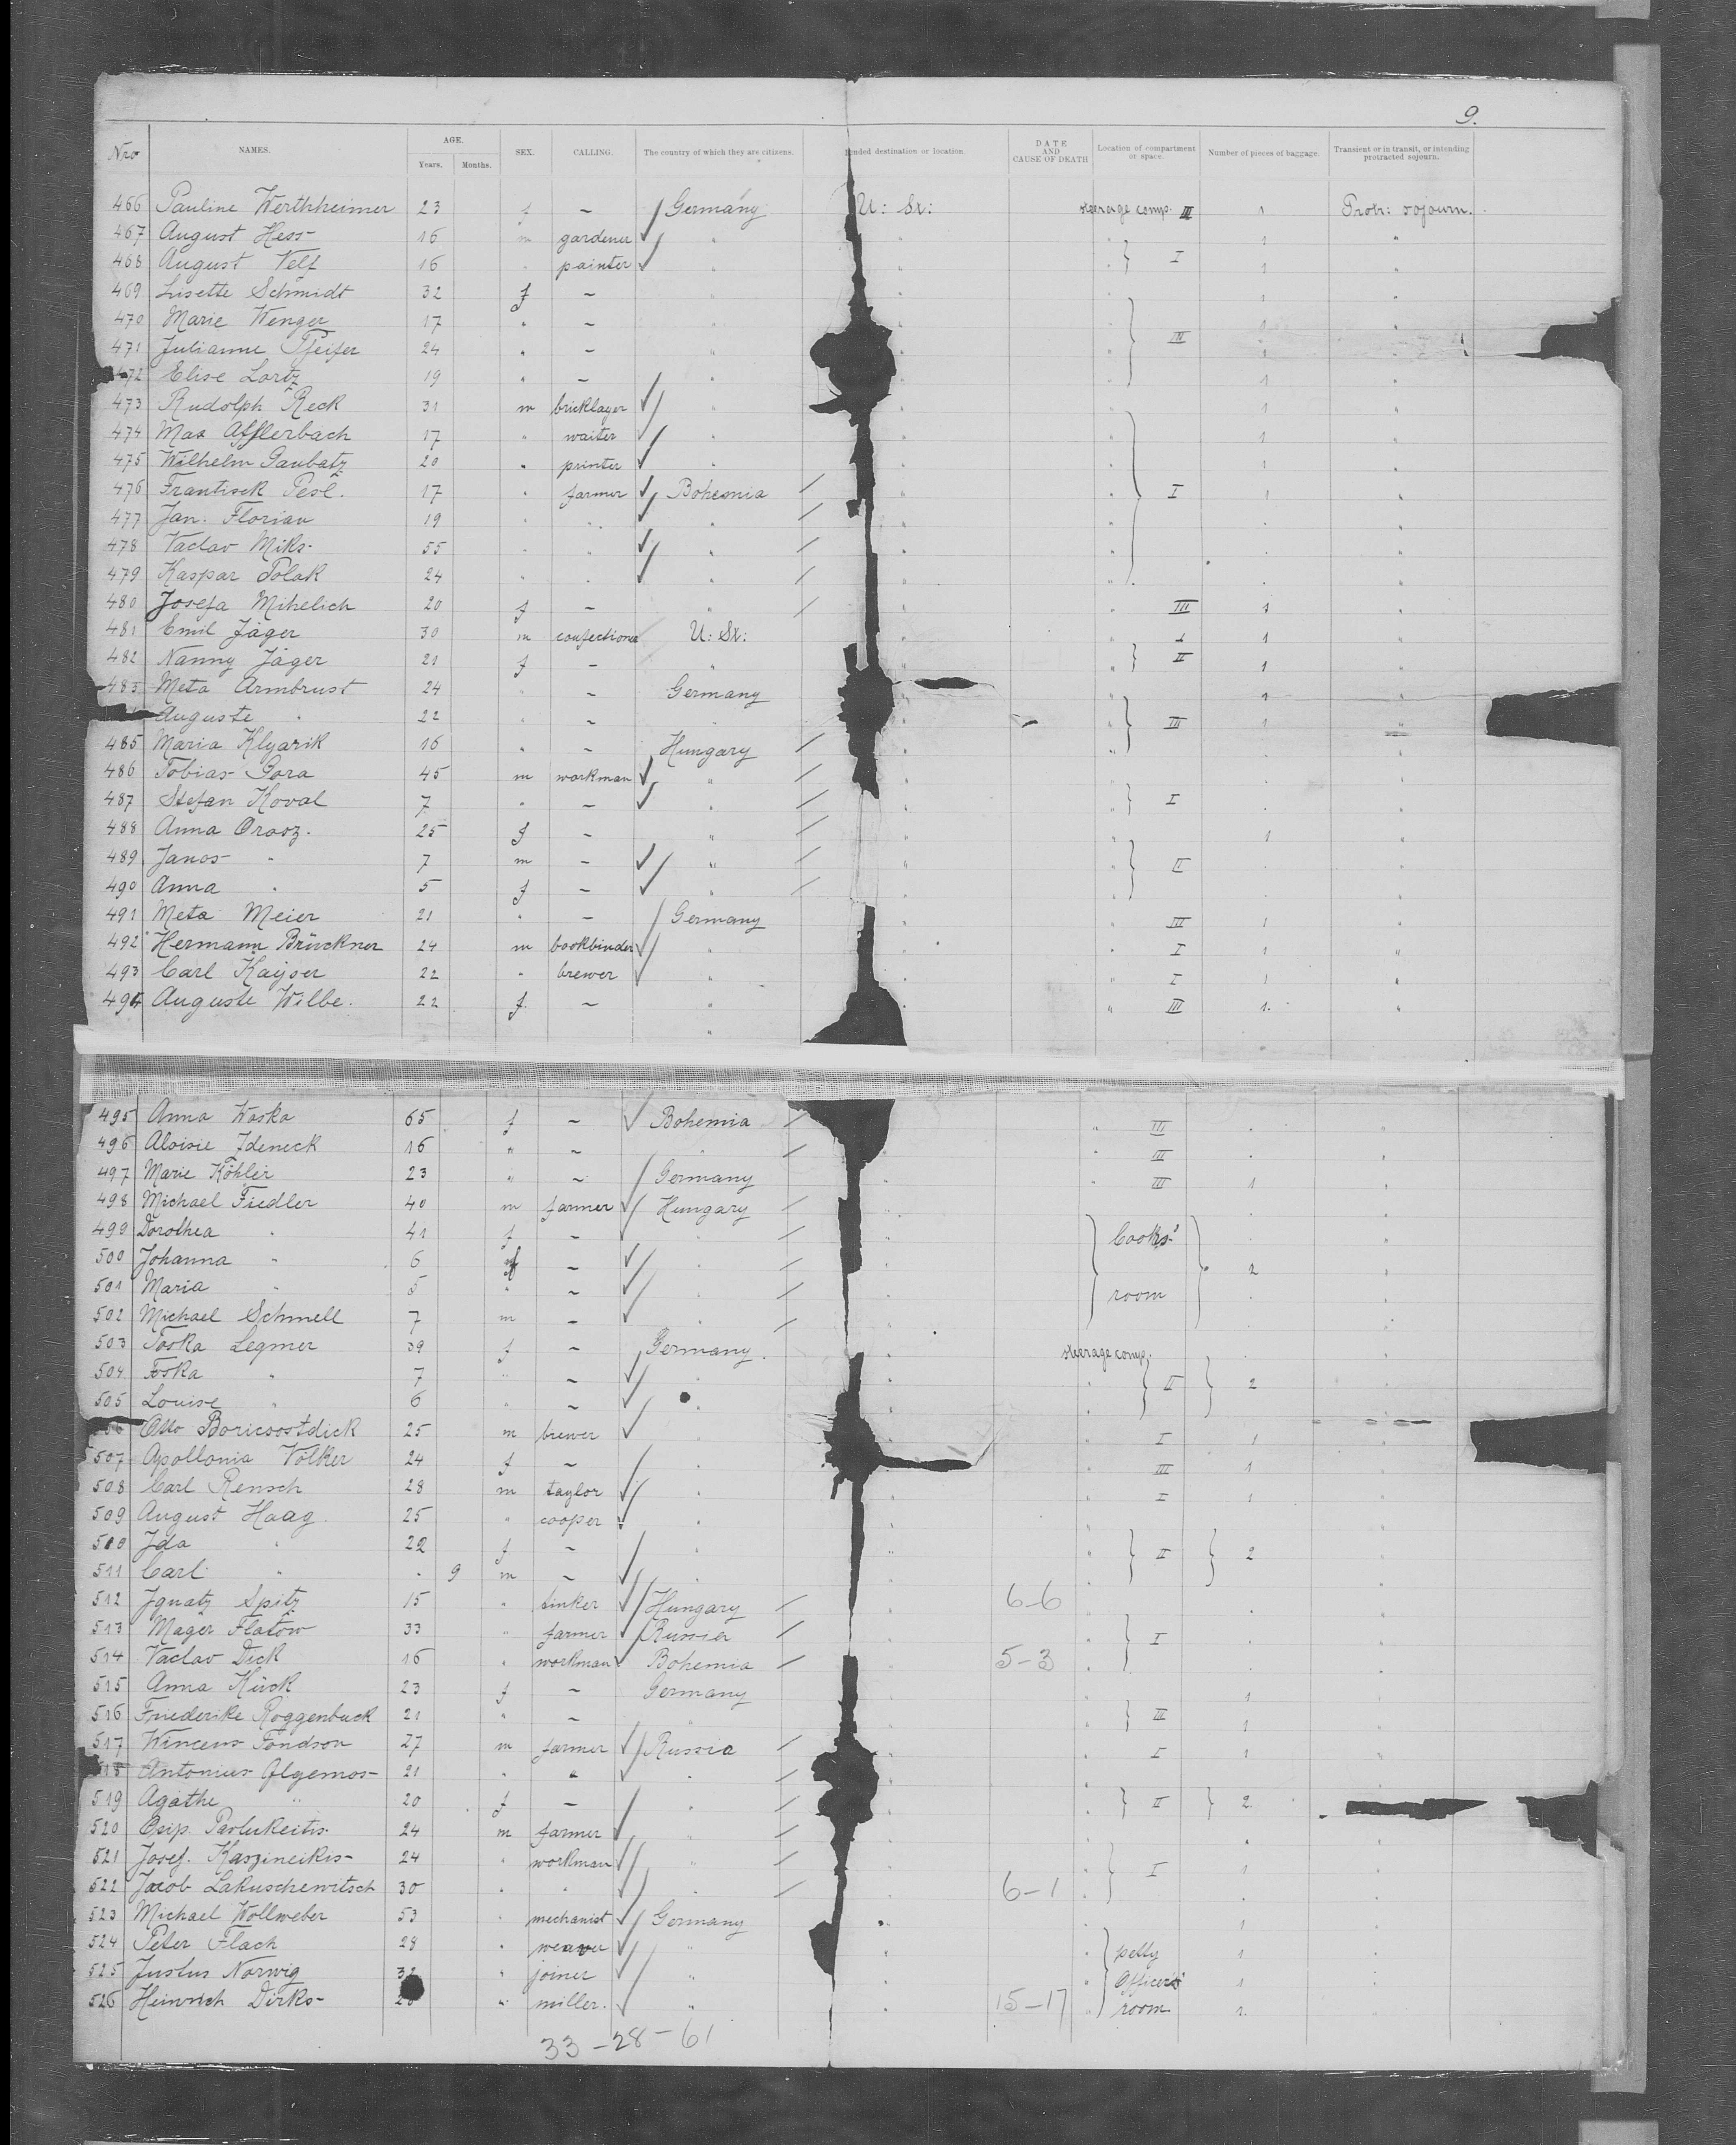 9.
Nro NAMES. AGE. Years. Months. SEX. CALLING. The country of which they are citizens. ended destination or location. DATE AND CAUSE OF DEATH Location of compartment or space. Number of pieces of baggage. Transient or in transit, or intending protracted sojourn.
466 Pauline Werthheimer 23 f – Germany U: St: steerage comp. III 1 Protr: sojourn.
467 August Hess 16 m gardener " " " 1 "
468 August Velf 16 " painter " " " I 1 "
469 Lisette Schmidt 32 f – " " " 1 "
470 Marie Wenger 17 " – " " " 1 "
471 Julianne Pfeifer 24 " – " " " III 1 "
472 Elise Lortz 19 " – " " " 1 "
473 Rudolph Reck 31 m bricklayer " " " 1 "
474 Max Afflerbach 17 " waiter " " " 1 "
475 Wilhelm Gaubatz 20 " printer " " " 1 "
476 Frantisek Pesl. 17 " farmer Bohemia " " I 1 "
477 Jan. Florian 19 " " " " " " "
478 Vaclav Miks 55 " " " " " " "
479 Kaspar Polak 24 " " " " " " "
480 Josefa Mihelich 20 f – " " " III 1 "
481 Emil Jäger 30 m confectioner U: St: " " 1 "
482 Nanny Jäger 21 f – " " " II 1 "
483 Meta Armbrust 24 " – Germany " " 1 "
Auguste " 22 " – " " " III 1 "
485 Maria Klyarik 16 " – Hungary " " " "
486 Tobias Gora 45 m workman " " " " "
487 Stefan Koval 7 " – " " " I " "
488 Anna Orosz. 25 f – " " " 1 "
489 Janos " 7 m – " " " II " "
490 Anna " 5 f – " " " " "
491 Meta Meier 21 " – Germany " " III 1 "
492 Hermann Brückner 24 m bookbinder " " " I 1 "
493 Carl Kayser 22 " brewer " " " I 1 "
494 Auguste Wilbe. 22 f. – " " " III 1. "
495 Anna Waska 65 f – Bohemia " III " "
496 Aloisie Zdeneck 16 " – " " III " "
497 Marie Köhler 23 " – Germany " " III 1 "
498 Michael Fiedler 40 m farmer Hungary " " "
499 Dorothea " 41 f – " " Cooks' " "
500 Johanna " 6 f – " " 2 "
501 Maria " 5 " – " " room " "
502 Michael Schmell 7 m – " " " "
503 Toska Legmer 39 f – Germany. " steerage comp. " "
504 Toska " 7 " – " " " II 2 "
505 Louise " 6 " – " " " "
Otto Boricoostdick 25 m brewer " " " I 1 "
507 Apollonia Völker 24 f – " " " III 1 "
508 Carl Rensch 28 m taylor " " " I 1 "
509 August Haag 25 " cooper " " " "
510 Ida " 22 f – " " " II 2 "
511 Carl " " 9 m – " " " "
512 Ignatz Spitz 15 " tinker Hungary " 6-6 " " "
513 Mager Flatow 33 " farmer Russia " " I " "
514 Vaclav Dick 16 " workman Bohemia " 5-3 " " "
515 Anna Kück 23 f – Germany " " 1 "
516 Friederike Roggenbuck 21 " – " " " III 1 "
517 Wincens Fondson 27 m farmer Russia " " I 1 "
518 Antonius Olgemos 21 " " " " " "
519 Agathe " 20 f – " " " II 2 "
520 Osip. Pavlukeitis 24 m farmer " " " " "
521 Josef. Kaszineikis 24 " workman " " " I 1 "
522 Jacob Lakuschewitsch 30 " " " " 6-1 " " "
523 Michael Wollweber 53 " mechanist Germany " " 1 "
524 Peter Flach 28 " weaver " " " petty 1 "
525 Justus Norwig 32 " joiner " " " Officers' 1 "
526 Heinrich Dirks " miller. " " 15-17 " room 1. "
33-28-61